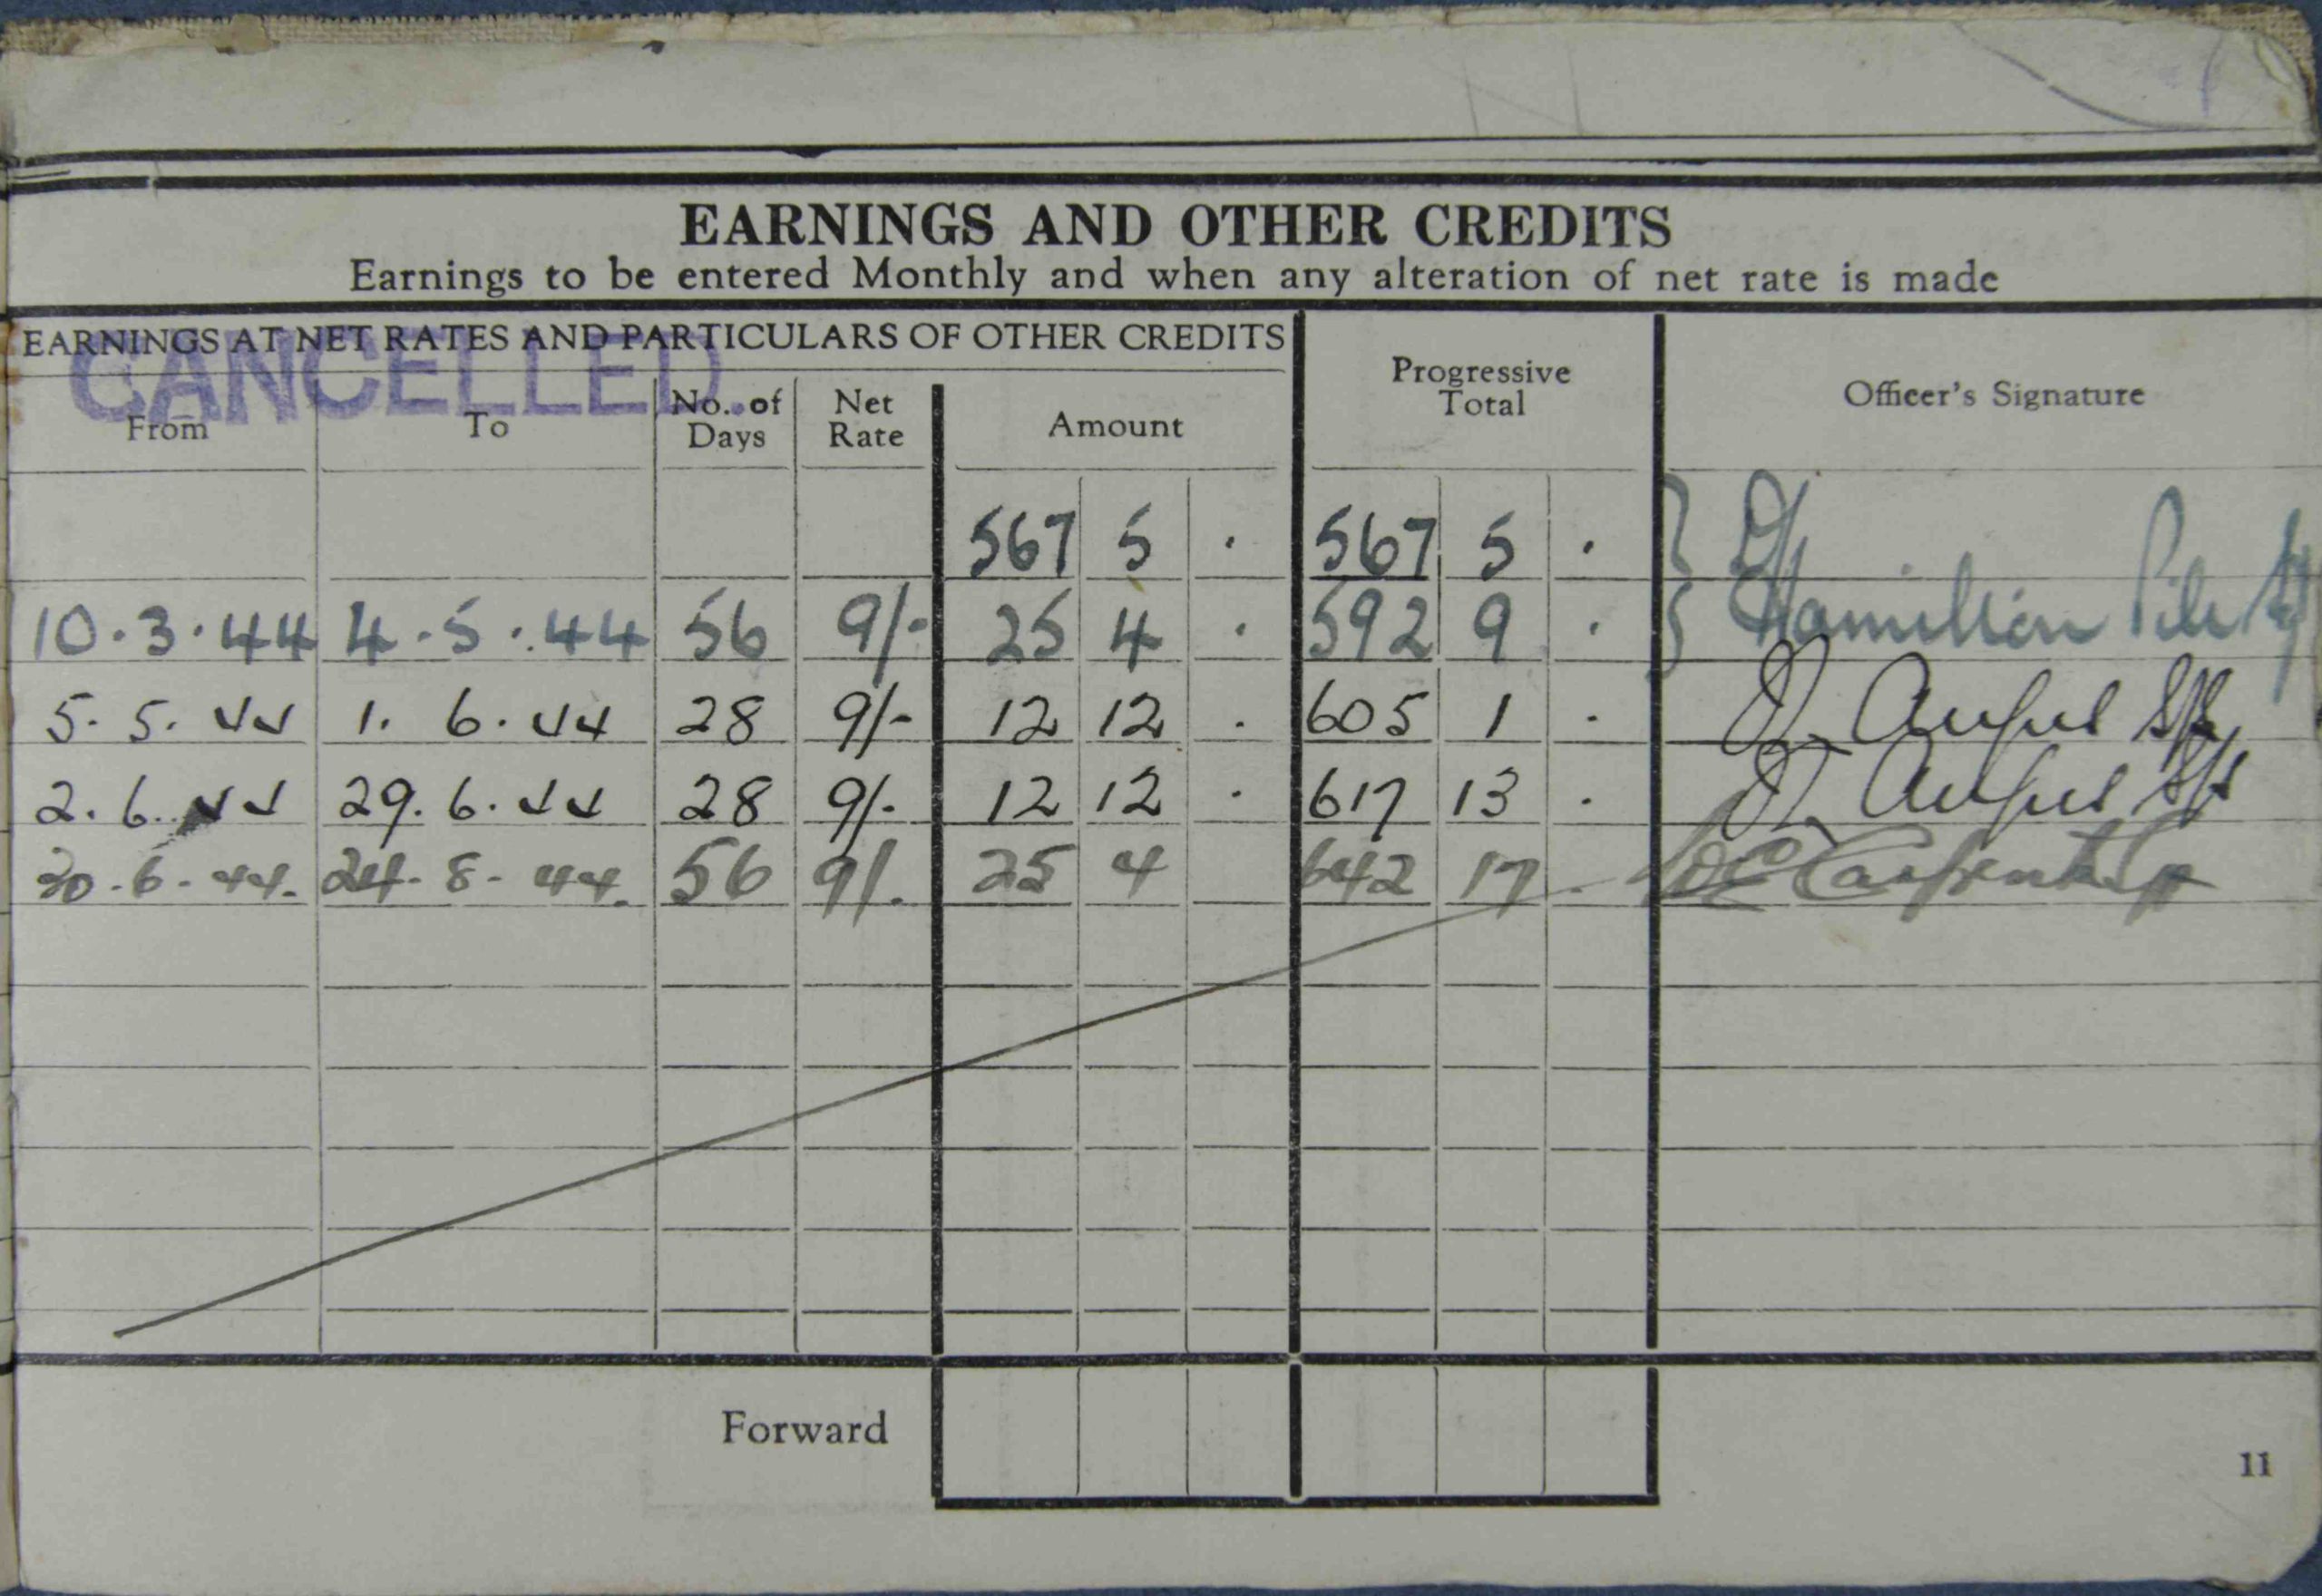 EARNINGS AND OTHER CREDITS
Earnings to be entered Monthly and when any alteration of net rate is made
EARNINGS AT NET RATES AND PARTICULARS OF OTHER CREDITS
CANCELLED.
From To No. of Days Net Rate Amount Progressive Total Officer's Signature
567 5 . 567 5 .
10.3.44 4.5.44 56 9/- 25 4 . 592 9 . Hamilton
5.5.44 1.6.44 28 9/- 12 12 . 605 1 . D. Angus
2.6.44 29.6.44 28 9/- 12 12 . 617 13 . D. Angus
30.6.44. 24.8.44. 56 9/. 25 4 642 17 .
Forward
11